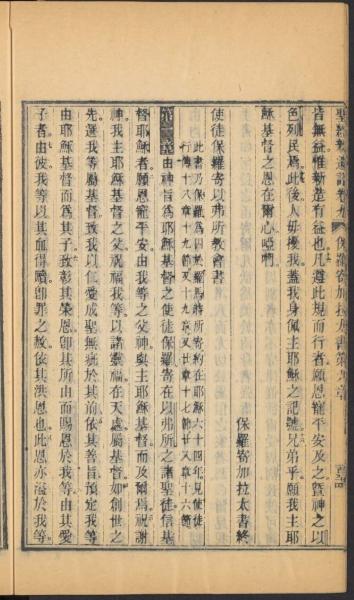 皆無益惟新造有益也凡遵此規而行者願恩寵平安及之暨神之以
色列民焉此後人毋擾我蓋我身佩主耶穌之記號兄弟乎願我主耶
穌基督之恩在爾心啞𠵽
保羅寄加拉太書終
使徒保羅寄以弗所教會書
此書乃保羅為囚於羅馬時所寄約在耶穌六十四年見使徒
行傳十八章十九節及十九章及廿章十七節廿八章十六節
第一章由神旨為耶穌基督之使徒保羅寄在以弗所之諸聖徒信基
督耶穌者願恩寵平安由我等之父神與主耶穌基督而及爾焉祝謝
神我主耶穌基督之父祝福我等以諸靈福在天處屬基督如創世之
先選我等屬基督致我以仁愛成聖無疵於其前依其善旨預定我等
由耶穌基督而為其子致彰其榮恩卽其所由而賜恩於我等由其愛
子者由彼我等以其血得贖卽罪之赦依其洪恩也此恩亦溢於我等